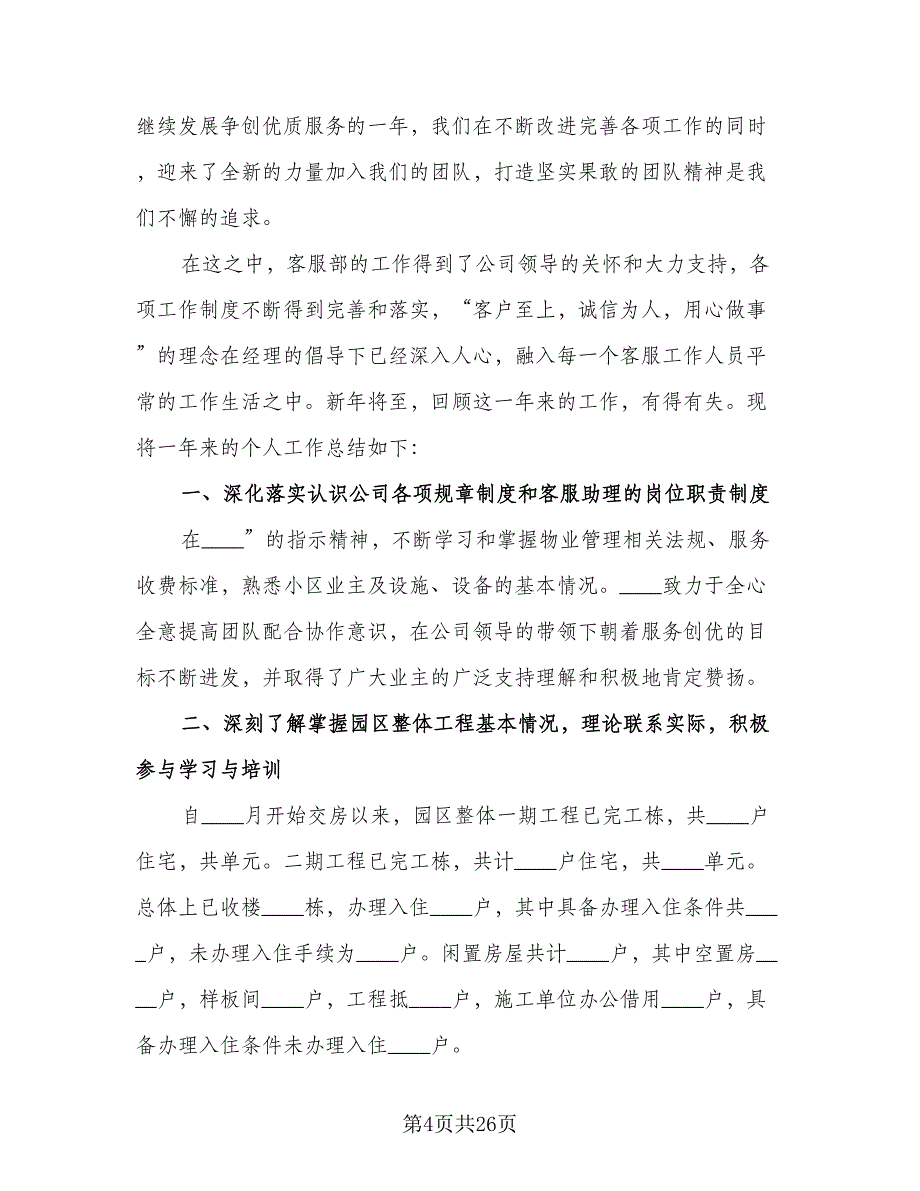 继续发展争创优质服务的一年，我们在不断改进完善各项工作的同时
，迎来了全新的力量加入我们的团队，打造坚实果敢的团队精神是我
们不懈的追求。
在这之中，客服部的工作得到了公司领导的关怀和大力支持，各
项工作制度不断得到完善和落实，“客户至上，诚信为人，用心做事
”的理念在经理的倡导下已经深入人心，融入每一个客服工作人员平
常的工作生活之中。新年将至，回顾这一年来的工作，有得有失。现
将一年来的个人工作总结如下：
一、深化落实认识公司各项规章制度和客服助理的岗位职责制度
在____”的指示精神，不断学习和掌握物业管理相关法规、服务
收费标准，熟悉小区业主及设施、设备的基本情况。____致力于全心
全意提高团队配合协作意识，在公司领导的带领下朝着服务创优的目
标不断进发，并取得了广大业主的广泛支持理解和积极地肯定赞扬。
二、深刻了解掌握园区整体工程基本情况，理论联系实际，积极
参与学习与培训
自____月开始交房以来，园区整体一期工程已完工栋，共____户
住宅，共单元。二期工程已完工栋，共计____户住宅，共____单元。
总体上已收楼____栋，办理入住____户，其中具备办理入住条件共___
_户，未办理入住手续为____户。闲置房屋共计____户，其中空置房__
__户，样板间____户，工程抵____户，施工单位办公借用____户，具
备办理入住条件未办理入住____户。
第4页共26页